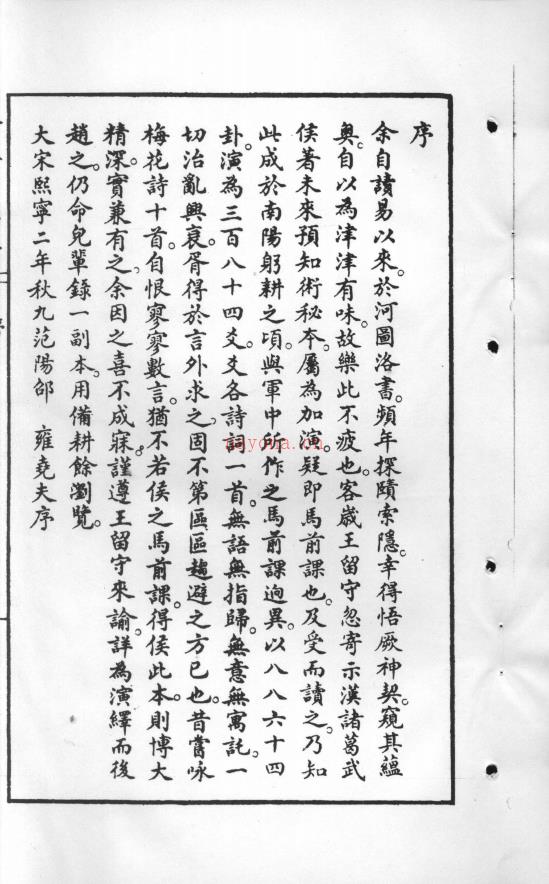 序
余自讀易以來。於河圖洛書。頻年探賾索隱。幸得悟厥神契。窺其蘊
奧。自以為津津有味。故樂此不疲也。客歲王留守忽寄示漢諸葛武
侯著未來預知術秘本。屬為加演。疑即馬前課也。及受而讀之。乃知
此成於南陽躬耕之頃。與軍中所作之馬前課迥異。以八八六十四
卦。演為三百八十四爻。爻各詩詞一首。無語無指歸。無意無寓託。一
切治亂興衰。胥得於言外求之。固不第區區趨避之方已也。昔嘗咏
梅花詩十首。自恨寥寥數言。猶不若侯之馬前課。得侯此本。則博大
精深。實兼有之。余因之喜不成寐。謹遵王留守來諭。詳為演繹而後
趙之。仍命兒輩錄一副本。用備耕餘瀏覽。
大宋熙寧二年秋九范陽邵　雍堯夫序
nayona.cn